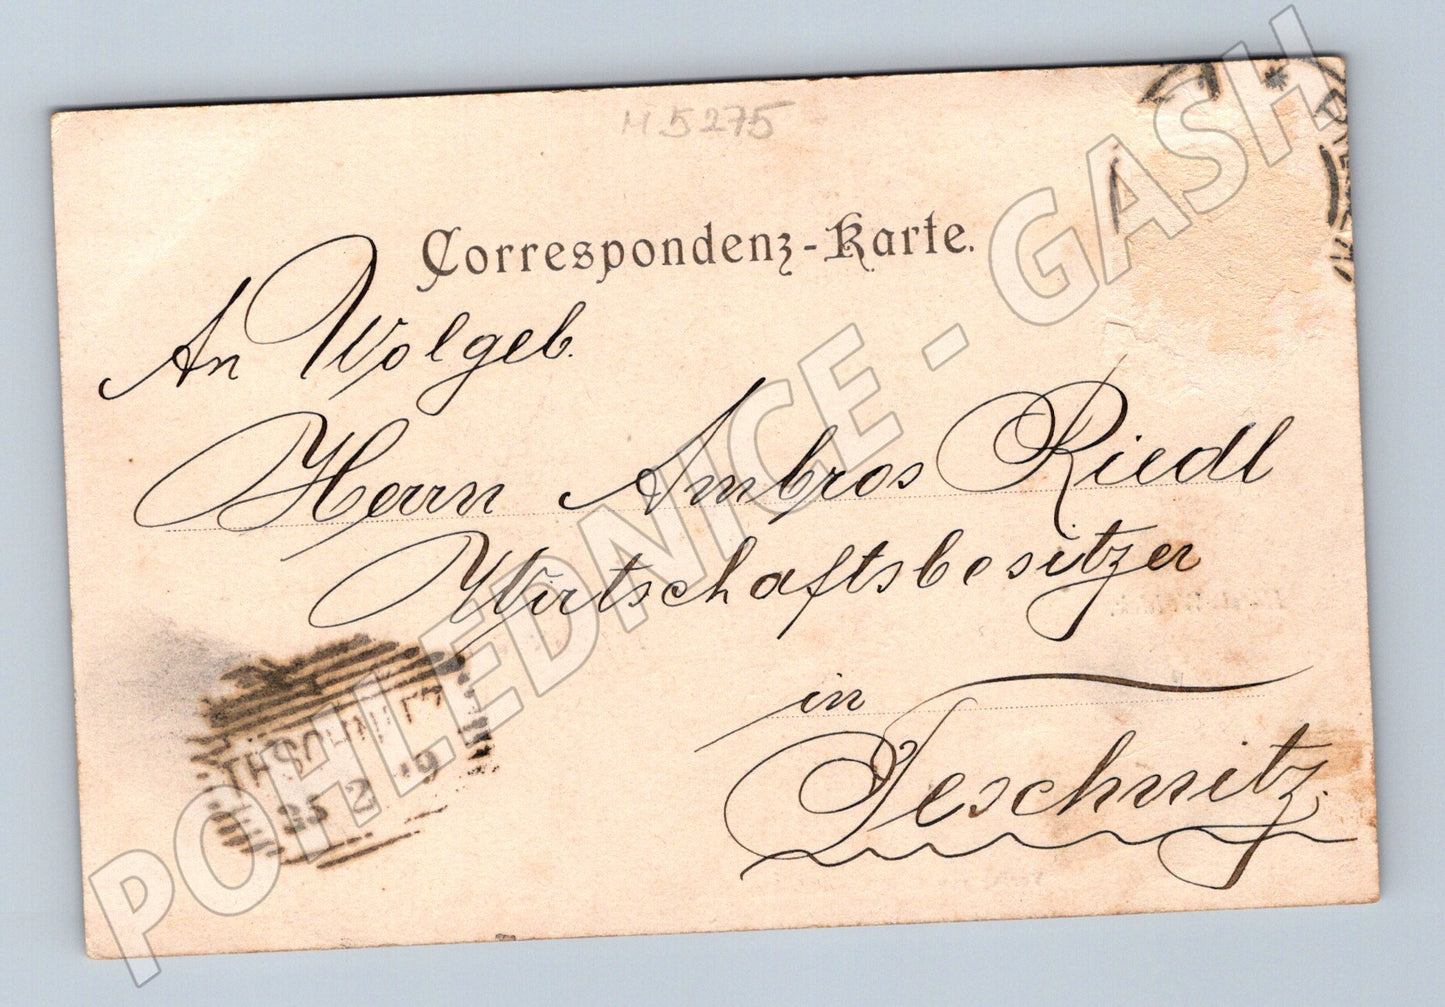 H 5275
Correspondenz-Karte.
An Wolgeb.
Herrn Ambros Riedl
Wirtschaftsbesitzer
in
Teschnitz.
25 2 9
POHLEDNICE - GASH